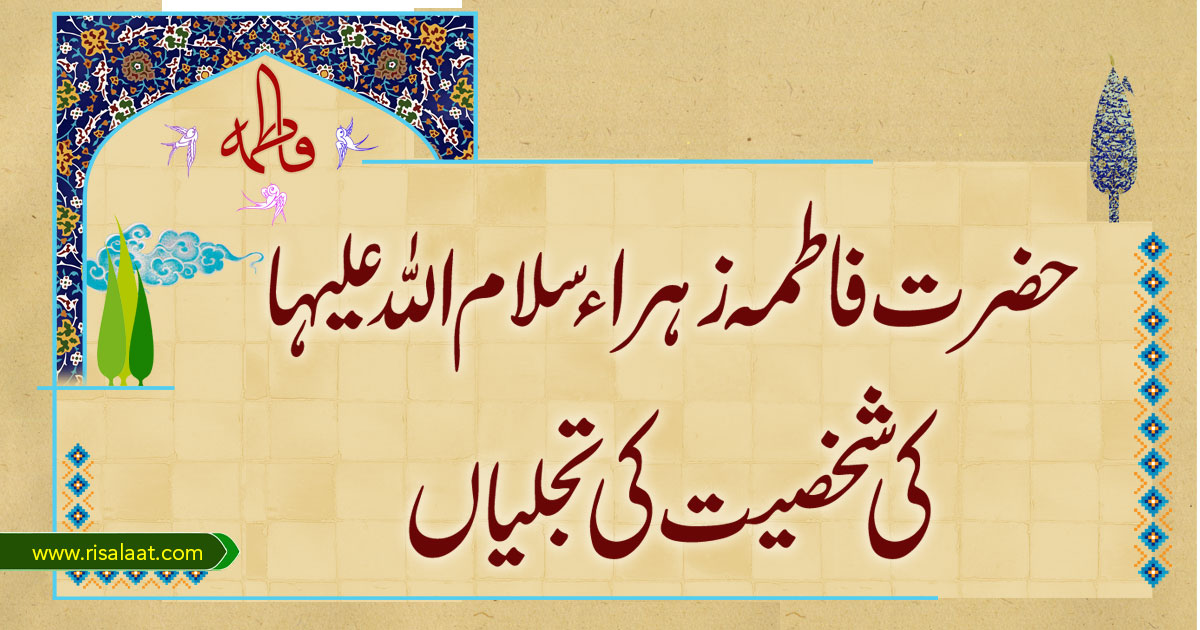 فاطمہ
حضرت فاطمہ زہراء سلام اللہ علیہا
کی شخصیت کی تجلیاں
www.risalaat.com